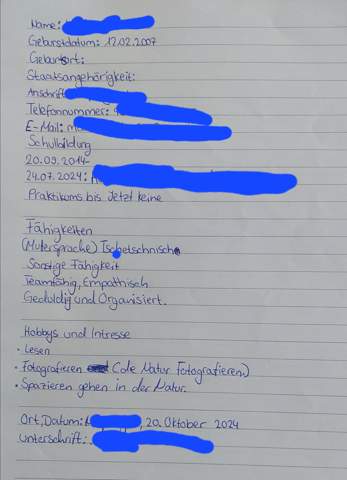 Name:
Geburstdatum: 12.02.2007
Geburtsort:
Staatsangehörigkeit:
Anschrift
Telefonnummer:
E-Mail:
Schulbildung
20.09.2014-
24.07.2024:
Praktikums bis Jetzt keine
Fähigkeiten
(Mutersprache)
Sonstige Fähigkeit
Teamfähig, Empathisch
Geduldig und Organisiert.
Hobbys und Intresse
• Lesen
• Fotografieren (die Natur Fotografieren)
• Spazieren gehen in der Natur.
Ort, Datum: , 20. Oktober 2024
Unterschrift: